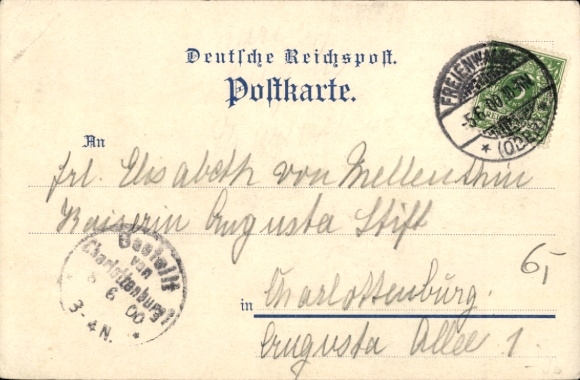 Deutsche Reichspost.
Postkarte.
FREIENWALDE
-5.6.00.
(ODER)
An
Frl. Elisabeth von Mellenthin
Kaiserin Augusta Stift
Bestellt
von
Charlottenburg
6 00
3-4N.
6,
in Charlottenburg.
Augusta Allee 1.